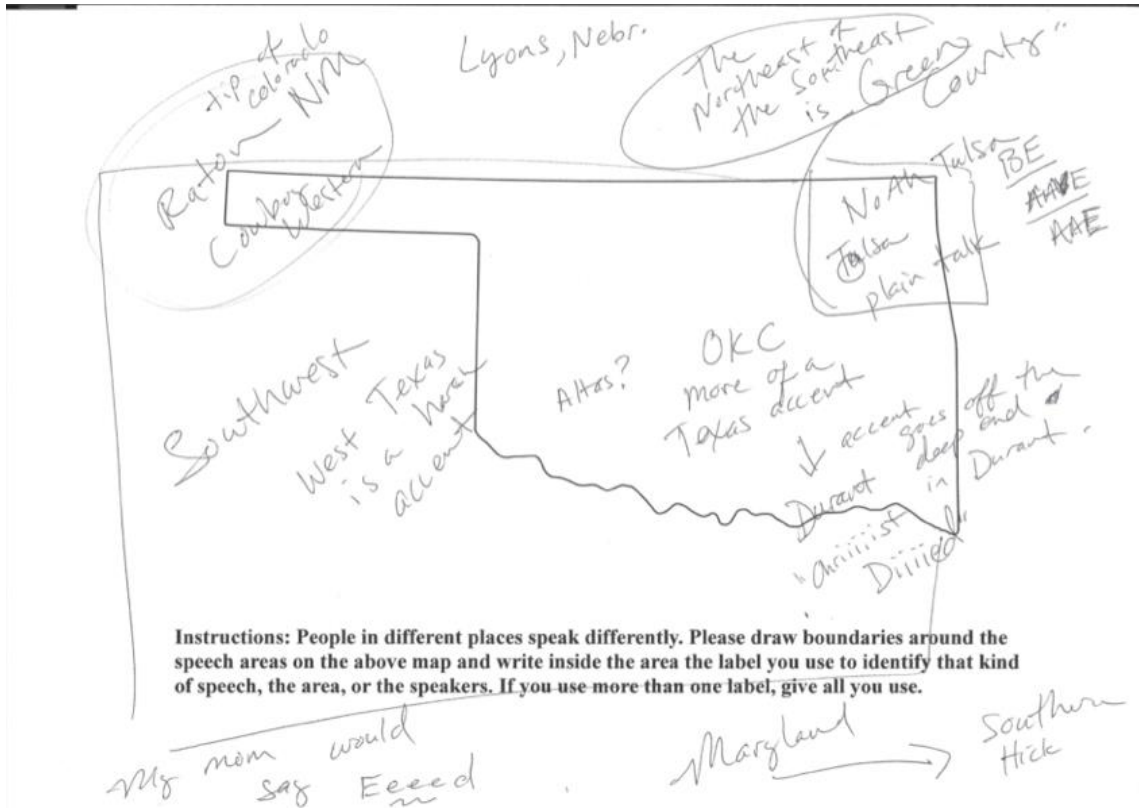 tip of
colorado
Raton NM
Cowboy
Western
Lyons, Nebr.
The
Northeast of
the Southeast
is Green
County"
NoAh Tulsa
Tulsa
plain talk
BE
AAVE
AAE
Southwest
West Texas
is a harsh
accent
Altos?
OKC
more of a
Texas accent
↓ accent
goes off the
deep end
in Durant.
Durant
"Chriiiiist
Diiiied"
Instructions: People in different places speak differently. Please draw boundaries around the
speech areas on the above map and write inside the area the label you use to identify that kind
of speech, the area, or the speakers. If you use more than one label, give all you use.
My mom would
say Eeeed
Maryland → Southern
Hick